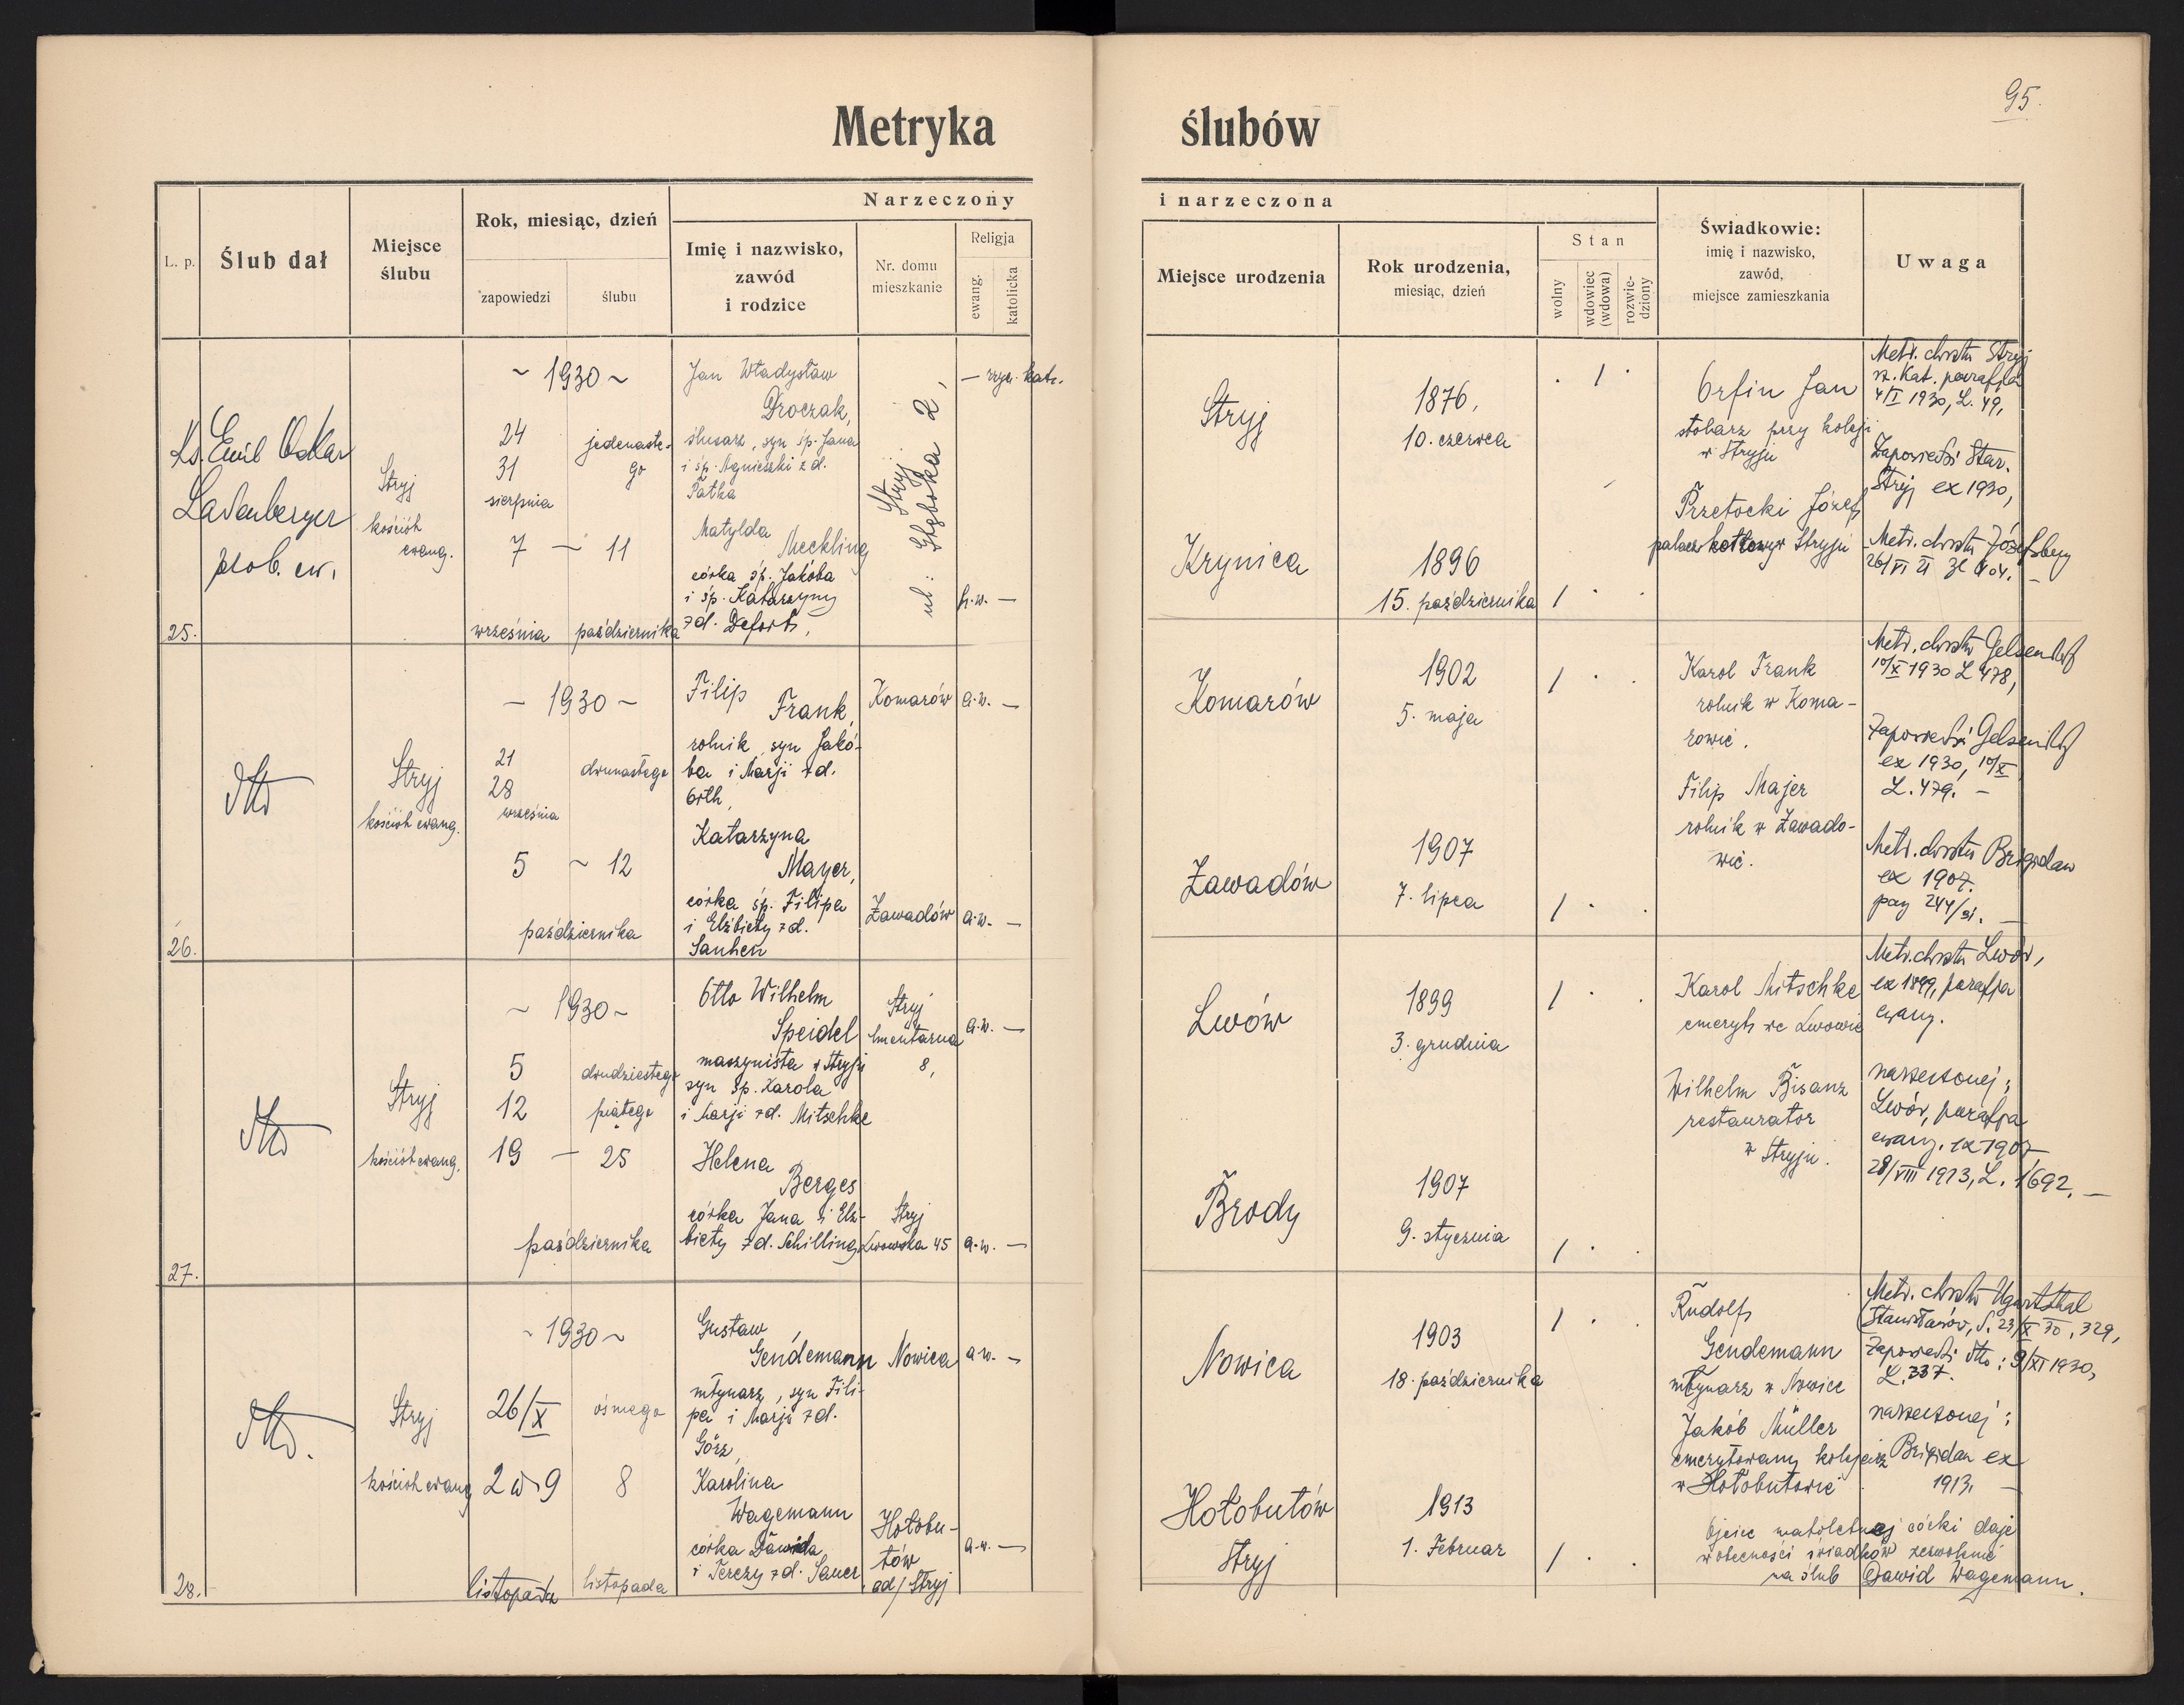 95.
Metryka ślubów
L. p.
Ślub dał
Miejsce
ślubu
Rok, miesiąc, dzień
zapowiedzi
ślubu
Narzeczony
Imię i nazwisko,
zawód
i rodzice
Nr. domu
mieszkanie
Religja
ewang.
katolicka
i narzeczona
Miejsce urodzenia
Rok urodzenia,
miesiąc, dzień
Stan
wolny
wdowiec
(wdowa)
rozwie-
dziony
Świadkowie:
imię i nazwisko,
zawód,
miejsce zamieszkania
Uwaga
25.
Ks. Emil Oskar
Ladenberger
prob. ew.
Stryj
kościół
ewang.
~ 1930 ~
24
31
sierpnia
7 —
września
jedenaste-
go
11
października
Jan Władysław
Droczak,
ślusarz, syn śp. Jana
i śp. Agnieszki z d.
Patka
Matylda
Meckling
córka śp. Jakóba
i śp. Katarzyny
z d. Deforts,
Stryj
ul: Głęboka 2,
— rzym. kat.
h.w. —
Stryj
1876,
10. czerwca
. / .
Krynica
1896
15. października
/ . .
Orfin Jan
stolarz przy koleji
w Stryju
Przetocki Józef
palacz kotłowy w Stryju
Metr. chrztu Stryj
rz. kat. parafja
4/I 1930, L. 49,
Zapowiedzi Star.
Stryj ex 1930,
Metr. chrztu Józefsberg
26/VI 21 Zl 404. —
26.
dtto
Stryj
kościół ewang.
— 1930 ~
21
28
września
5 ~ 12
października
dwunastego
Filip
Frank,
rolnik, syn Jakó-
ba i Marji z d.
Orth,
Katarzyna
Mayer,
córka śp. Filipa
i Elżbiety z d.
Sauheu
Komarów
a.w. —
Zawadów
a.w. —
Komarów
1902
5. maja
/ . .
Zawadów
1907
7. lipca
/ . .
Karol Frank
rolnik w Koma-
rowie.
Filip Majer
rolnik w Zawado-
wie.
Metr. chrztu Gelsendorf
10/X 1930 L 478,
Zapowiedzi Gelsendorf
ex 1930, 10/X
L. 479. —
Metr. chrztu Brigidau
ex 1907.
pag 244/91. —
27.
dtto
Stryj
kościół ewang.
~ 1930 ~
5
12
19 — 25
października
dwudziestego
piątego
Otto Wilhelm
Speidel
maszynista w Stryju
syn śp. Karola
i Marji z d. Mitschke
Helena
Berges
córka Jana i Elż-
biety z d. Schilling
Stryj
Cmentarna
8,
a.w. —
Stryj
Lwowska 45
a.w. —
Lwów
1899
3. grudnia
/ . .
Brody
1907
9. stycznia
/ . .
Karol Mitschke
emeryt we Lwowie
Wilhelm Bisanz
restaurator
w Stryju.
Metr. chrztu Lwów,
ex 1899, parafja
ewang.
narzeczonej:
Lwów, parafja
ewang. ex 1907
28/VIII 1913, L. 1692. —
28.
dtto.
Stryj
kościół ewang
~ 1930 ~
26/X
2 i 9
listopada
ósmego
8
listopada
Gustaw
Gendemann
młynarz, syn Fili-
pa i Marji z d.
Görz,
Karolina
Wagemann
córka Dawida
i Terezy z d. Sauer
Nowica
a.w. —
Hołobu-
tów
ad/ Stryj
a.w. —
Nowica
1903
18. października
/ . .
Hołobutów
Stryj
1913
1. Februar
/ . .
Rudolf
Gendemann
młynarz w Nowice
Jakób Müller
emerytowany kolejarz
w Hołobutowie
Metr. chrztu Ugartsthal
(Stanisławów, d. 23/X 30, 329,
Zapowiedzi dtto: 9/XI 1930,
L. 337.
narzeczonej:
Brigidau ex
1913. —
Ojciec małoletniej córki daje
w obecności świadków zezwolenie
na ślub Dawid Wagemann.